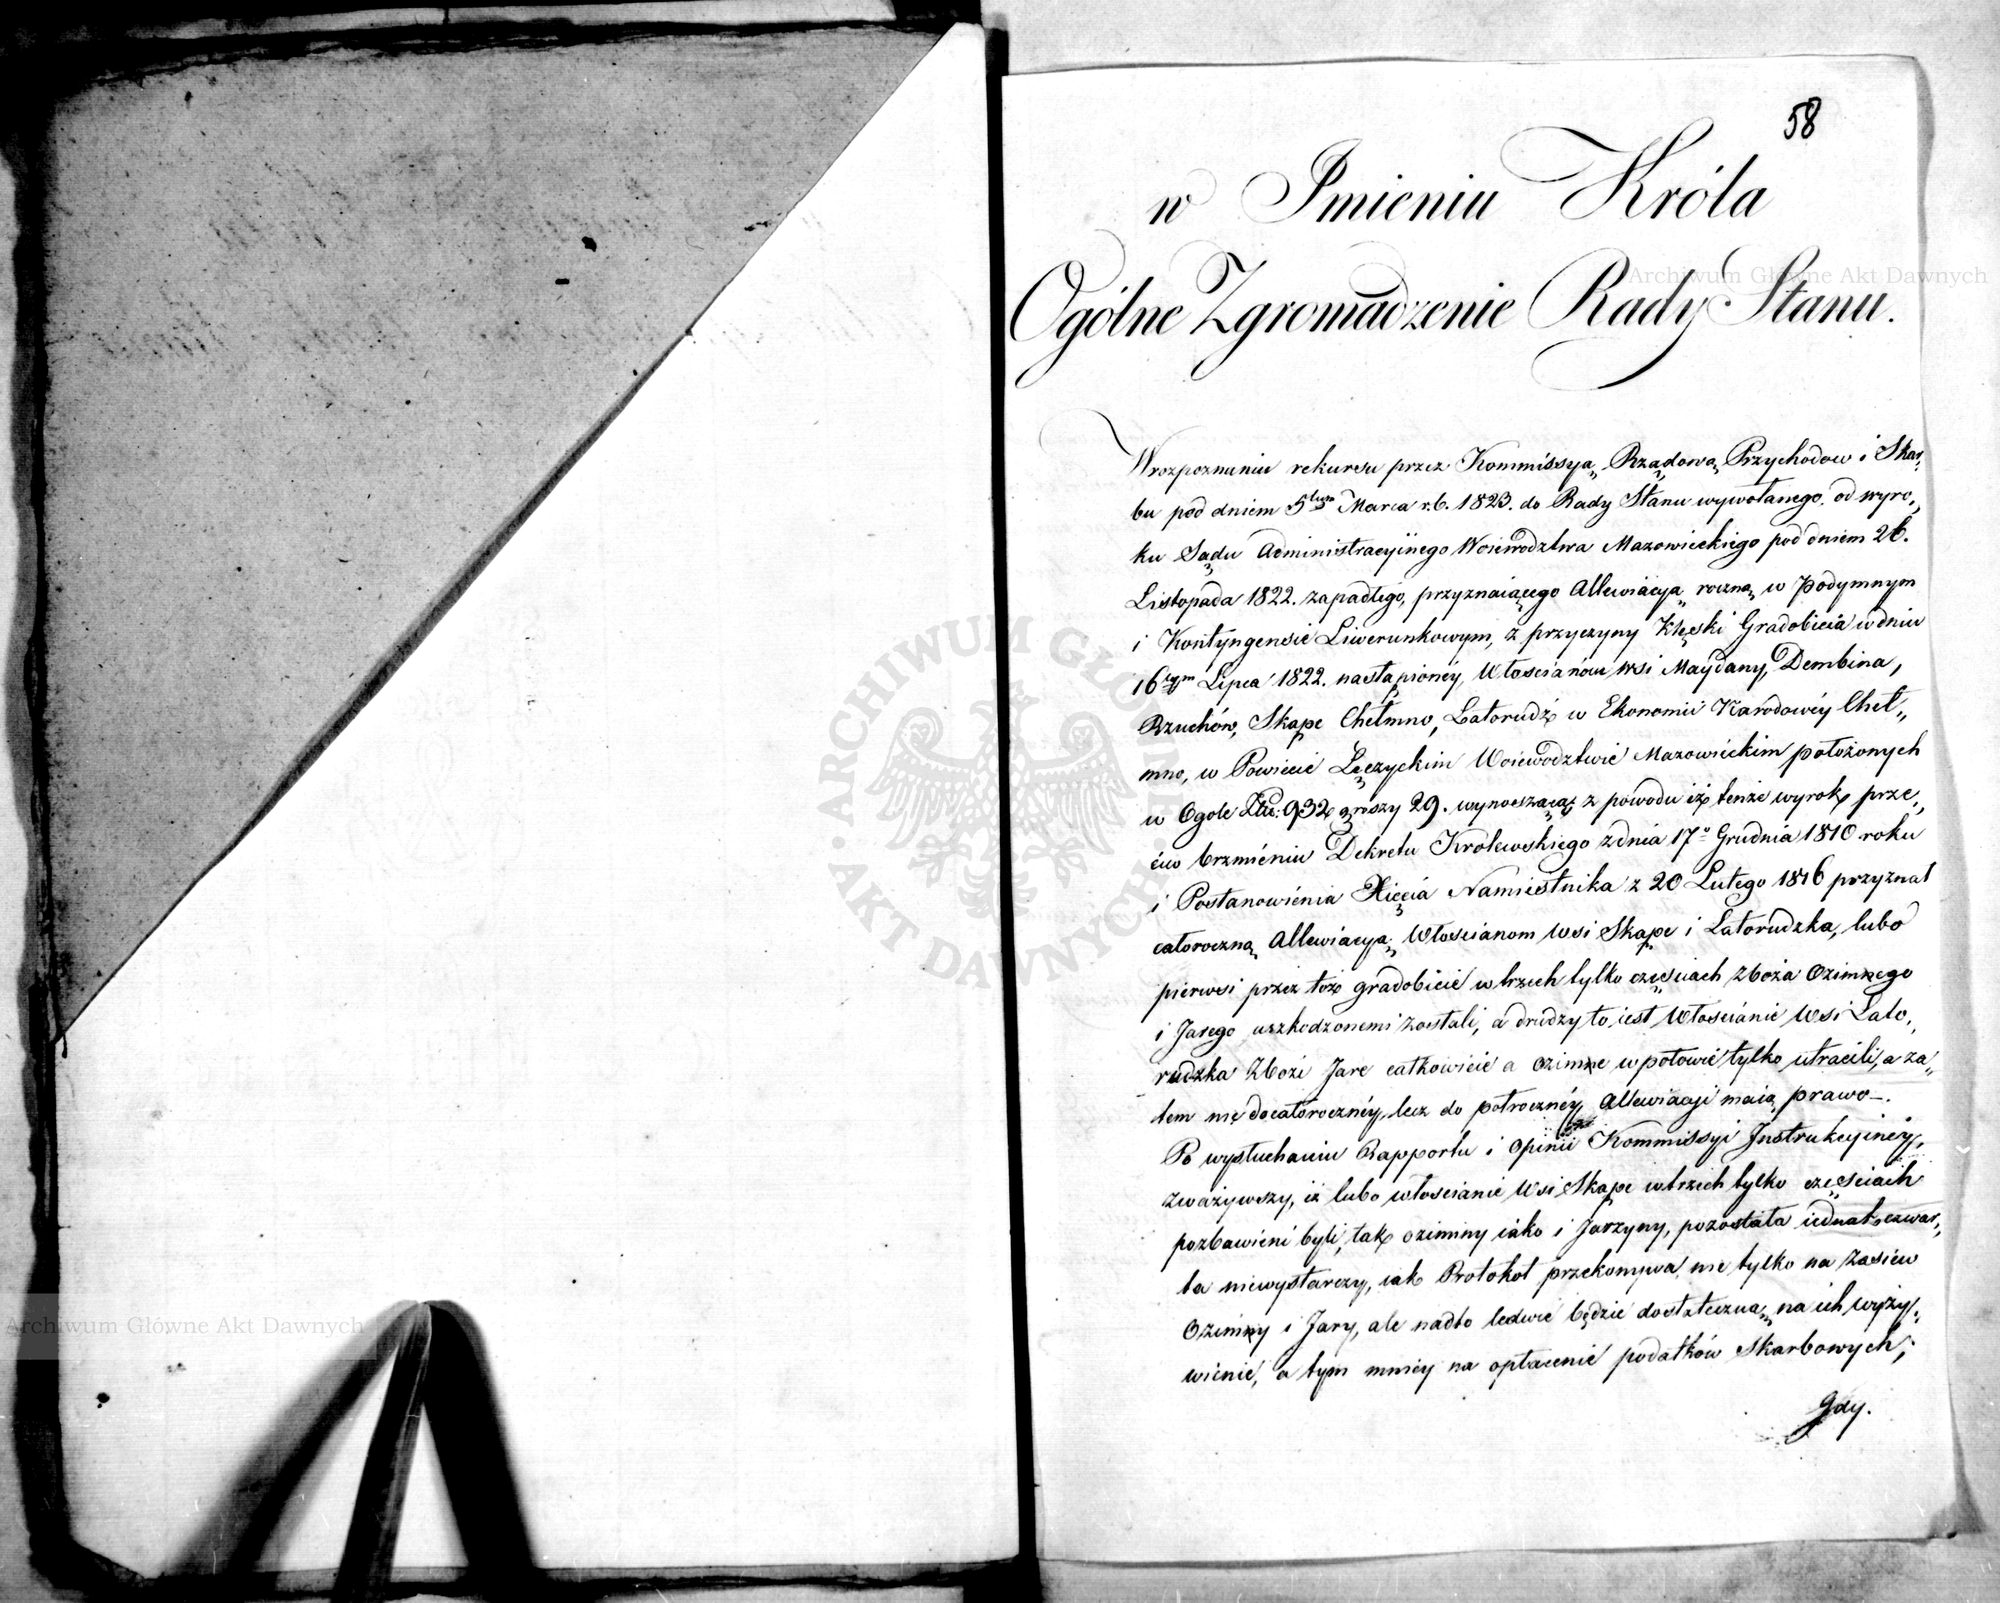 58
w Imieniu Króla
Ogólne Zgromadzenie Rady Stanu.
Wrozpoznaniu rekursu przez Kommissyą Rządową Przychodow i Skar„
bu pod dniem 5tym Marca r.b. 1823. do Rady Stanu wywołanego. od wyro„
ku Sądu Administracyinego Woiewodztwa Mazowieckiego pod dniem 26.
Listopada 1822. zapadłego, przyznaiącego Allewiacyą roczną w Podymnym
i Kontyngensie Liwerunkowym, z przyczyny Klęski Gradobicia w dniu
16tym Lipca 1822. nastąpionéy, Włościanom wsi Maydany, Dembina,
Rzuchów, Skąpe Chełmno, Łatorudź w Ekonomii Narodowéy Cheł„
mno, w Powiecie Łęczyckim Woiewodztwie Mazowieckim położonych
w Ogole Złtr: 932 groszy 29. wynoszącą z powodu iż tenże wyrok prze„
ciw brzmieniu Dekretu Krolewskiego z dnia 17o Grudnia 1810 roku
i Postanowienia Xięcia Namiestnika z 20 Lutego 1816 przyznał
całoroczną Allewiacyą Włościanom Wsi Skąpe i Łatorudzka, lubo
pierwsi przez toż gradobicie w trzech tylko częściach zboża Ozimnego
i Jarego uszkodzonemi zostali, a drudzy to iest Włościanie Wsi Łato„
rudzka Zboże Jare całkowicie a ozimne w połowie tylko utracili, a za„
tem nie do całorocznéy, lecz do połrocznéy Allewiacji maią prawo—.
Po wysłuchaniu Rapportu i Opinii Kommissyi Instrukcyinéy,
zważywszy, iż lubo włościanie Wsi Skąpe w trzech tylko częściach
pozbawieni byli, tak oziminy iako i Jarzyny, pozostała iednak czwar„
ta niewystarczy, iak Protokoł przekonywa, nie tylko na Zasiew
Ozimny i Jary, ale nadto ledwie będzie dostateczną na ich wyży„
wienie, a tym mniéy na opłacenie podatków Skarbowych;
Gdy.
Archiwum Główne Akt Dawnych
Archiwum Główne Akt Dawnych
ARCHIWUM GŁÓWNE AKT DAWNYCH